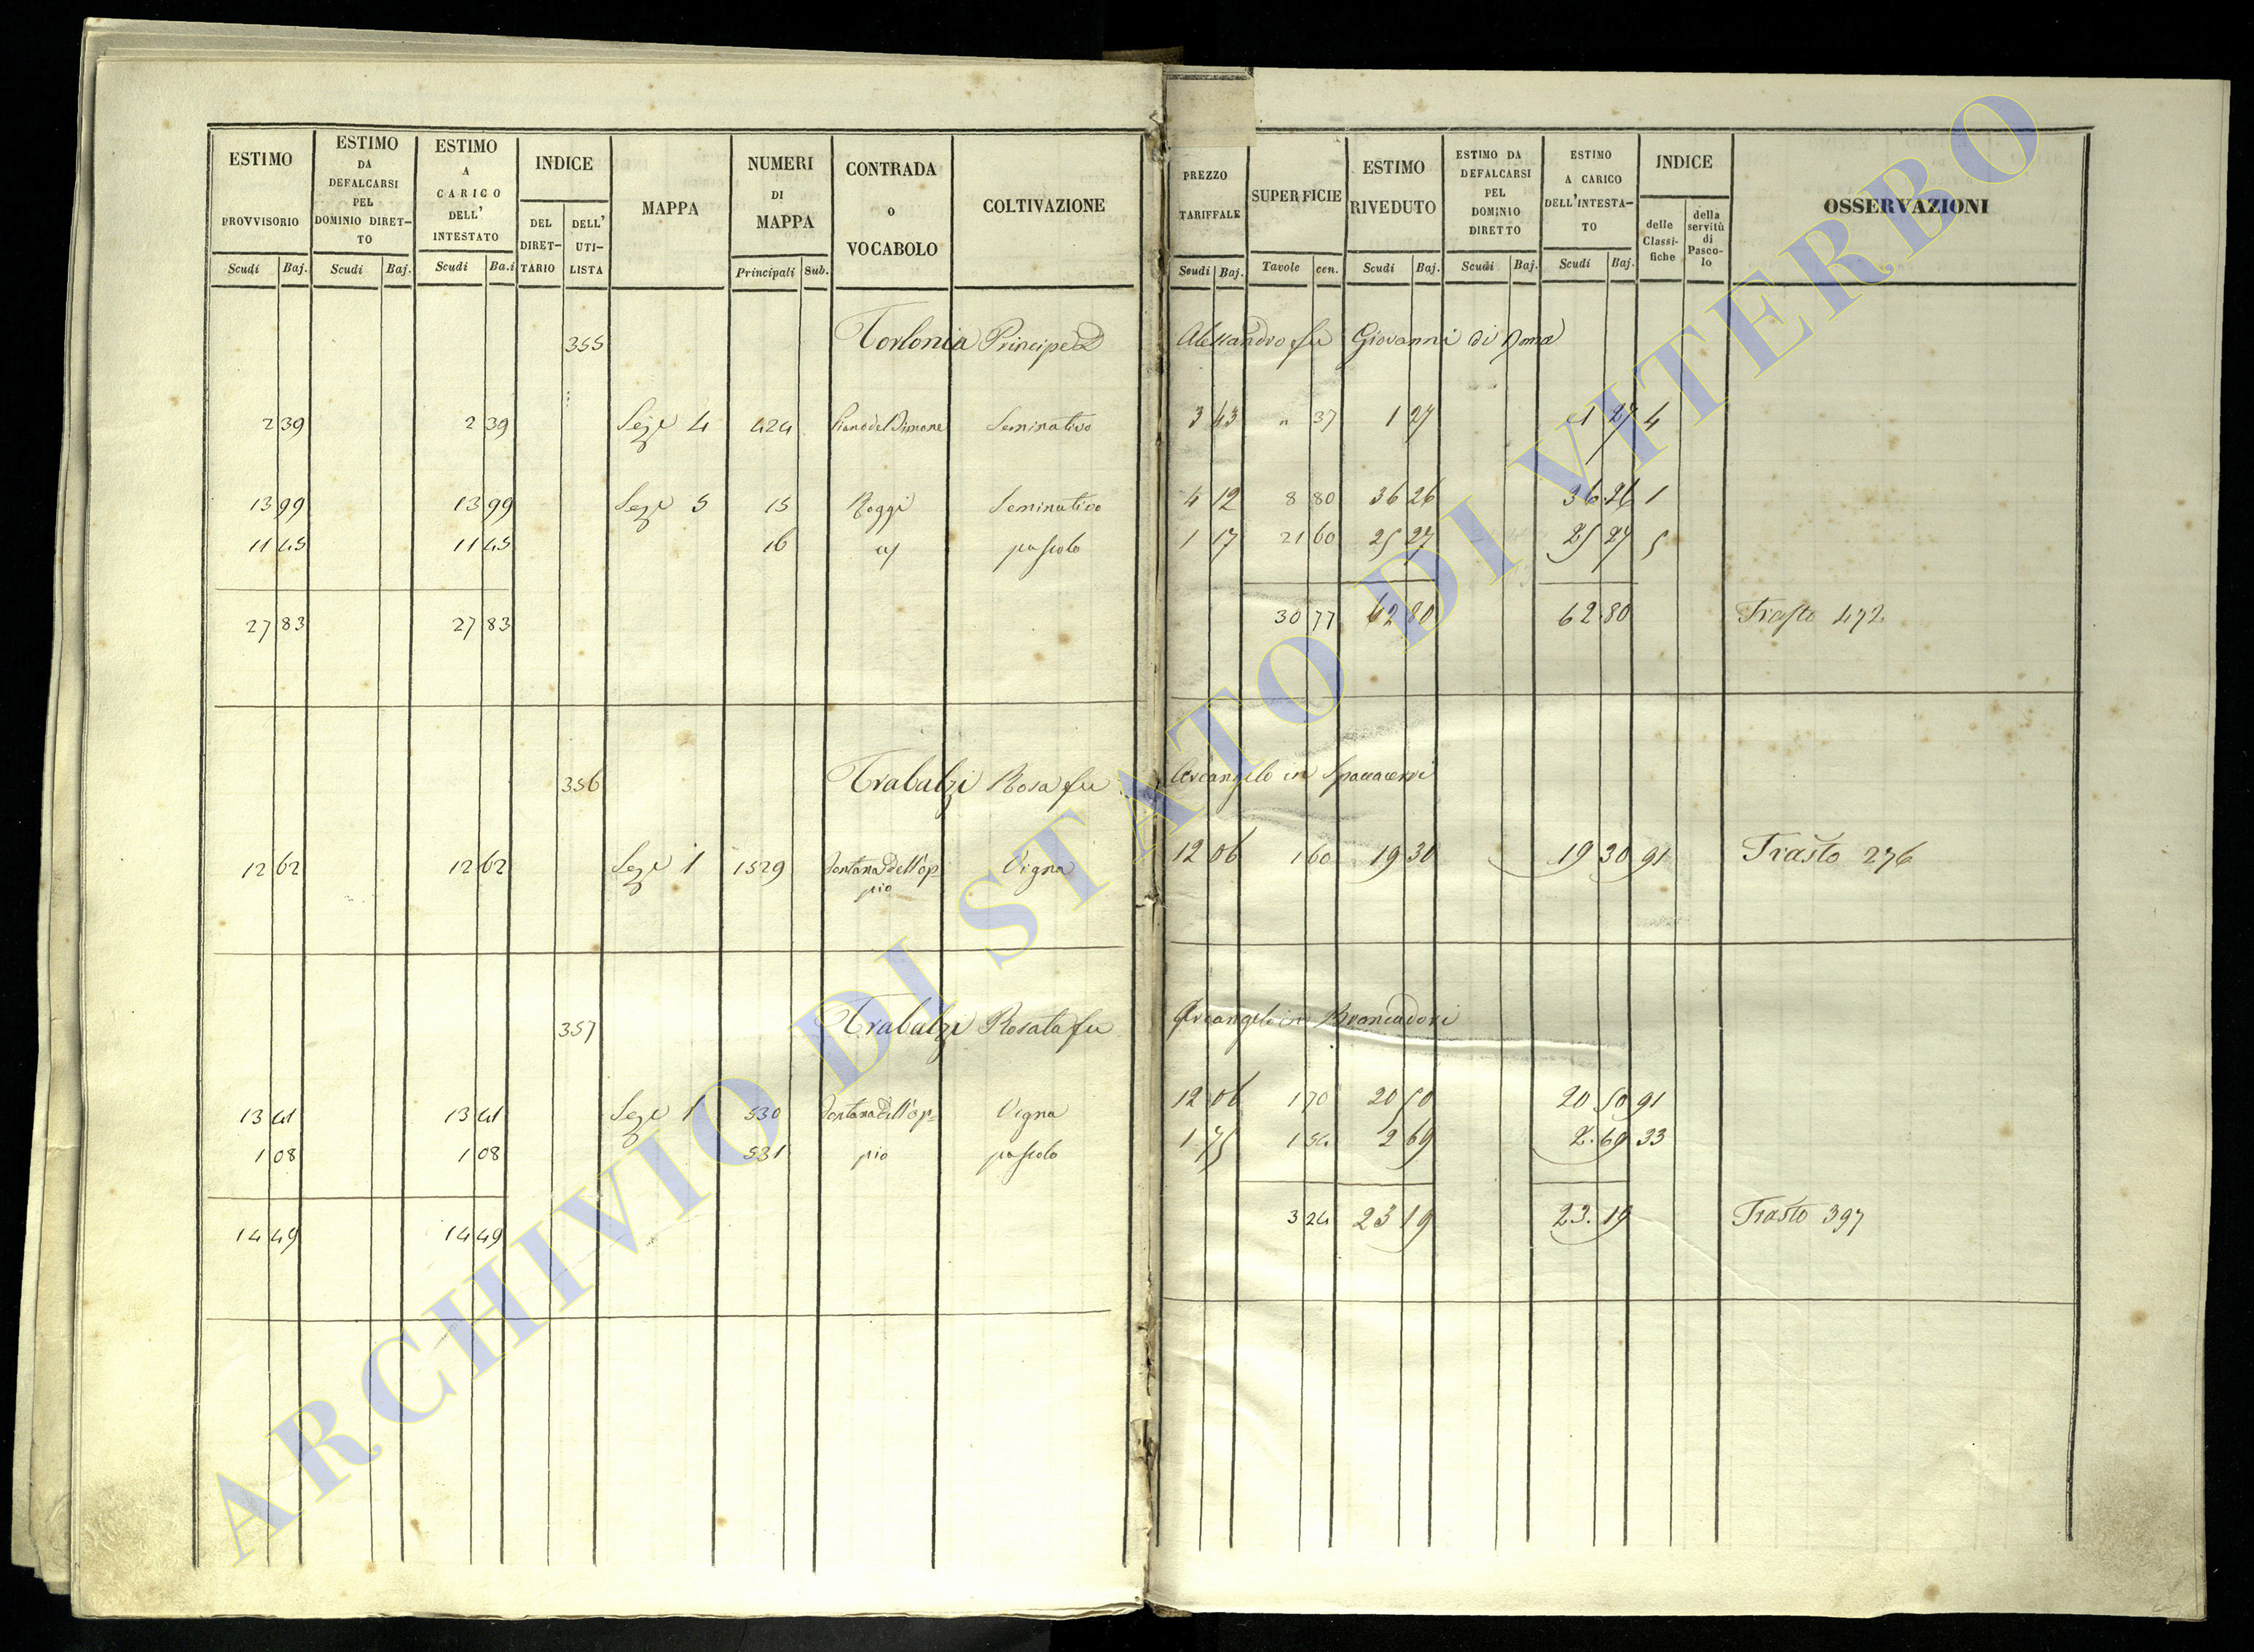 ESTIMO PROVVISORIO Scudi Baj.
ESTIMO DA DEFALCARSI PEL DOMINIO DIRET-TO Scudi Baj.
ESTIMO A CARICO DELL' INTESTATO Scudi Ba.i
INDICE DEL DIRET-TARIO DELL' UTI-LISTA
MAPPA
NUMERI DI MAPPA Principali Sub.
CONTRADA o VOCABOLO
COLTIVAZIONE
PREZZO TARIFFALE Scudi Baj.
SUPERFICIE Tavole cen.
ESTIMO RIVEDUTO Scudi Baj.
ESTIMO DA DEFALCARSI PEL DOMINIO DIRETTO Scudi Baj.
ESTIMO A CARICO DELL'INTESTA-TO Scudi Baj.
INDICE delle Classi-fiche della servitù di Pasco-lo
OSSERVAZIONI
355 Torlonia Principe D Alessandro fu Giovanni di Roma
2 39 2 39 Seze 4 424 Piano del Seminativo 3 43 " 37 1 27 1 27 4
13 99 13 99 Seze 5 15 Roggi Seminativo 4 12 8 80 36 26 36.26 1
11 45 11 45 16 pascolo 1 17 21 60 25 27 25 27 5
27 83 27 83 30 77 62 80 62.80 Trasto 472
356 Trabalzi Rosa fu Arcangelo in
12 62 12 62 Seze 1 1529 Fontana dell'op- Vigna 12 06 1 60 19 30 19 30 91 Trasto 276
pio
357 Trabalzi Rosata fu Arcangelo in Brancadori
13 41 13 41 Seze 1 530 Fontana dell'op= Vigna 12 06 1 70 20 50 20 50 91
1 08 1 08 531 pio pascolo 1 75 1 54 2 69 2.69 33
14 49 14 49 3 24 23 19 23.19 Trasto 397
ARCHIVIO DI STATO DI VITERBO